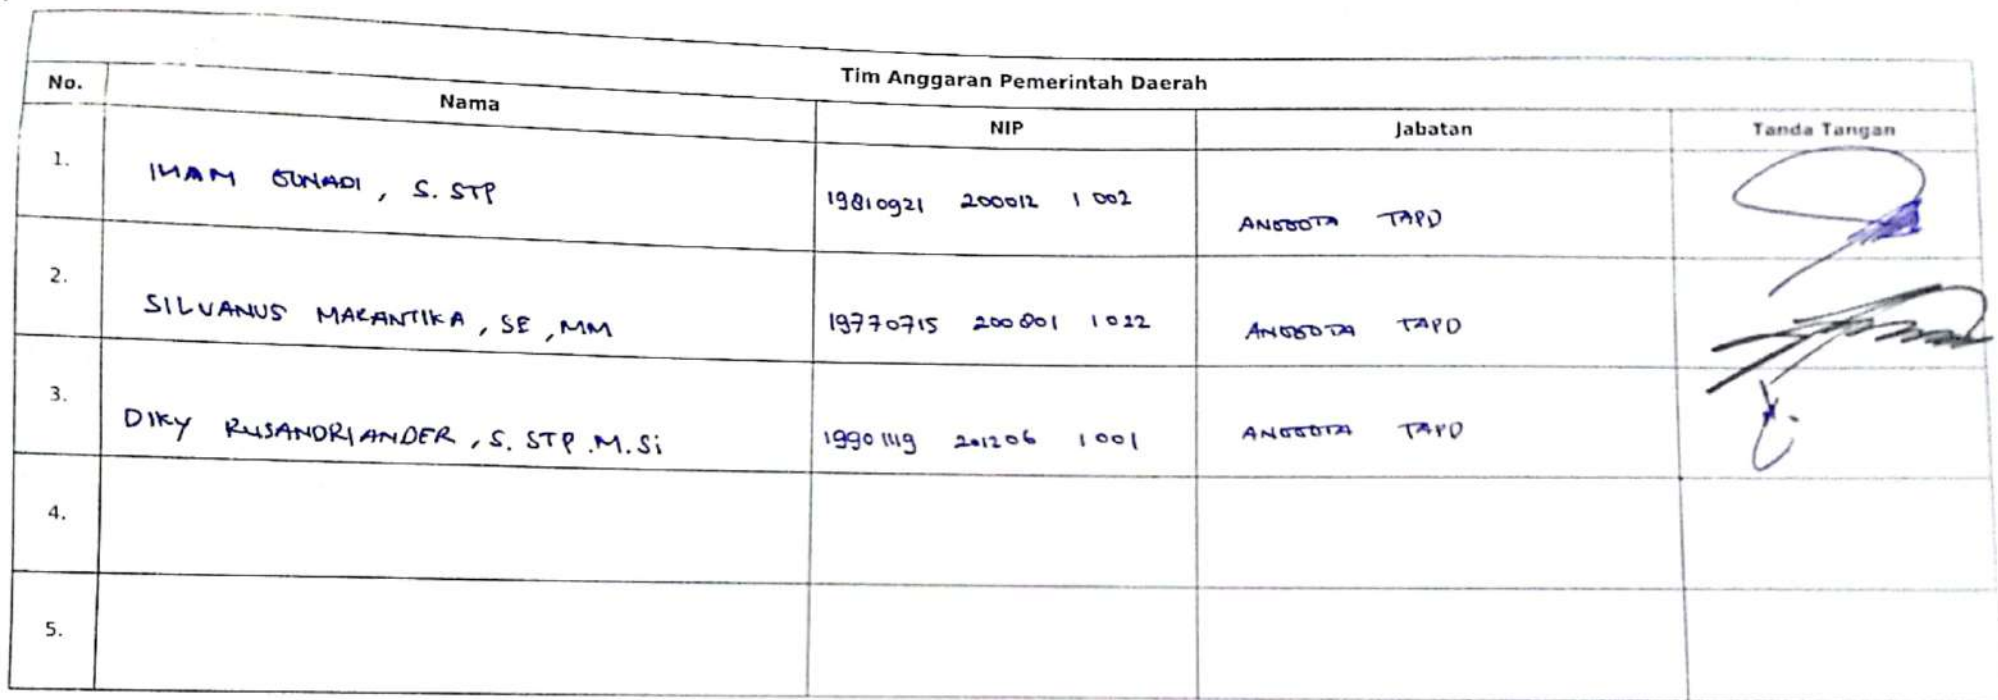 Tim Anggaran Pemerintah Daerah
No. Nama NIP Jabatan Tanda Tangan
1. IMAM GUNADI, S. STP 19810921 200012 1 002 ANGGOTA TAPD
2. SILVANUS MARANTIKA, SE, MM 19770715 200801 1022 ANGGOTA TAPD
3. DIKY RUSANDRIANDER, S. STP. M. Si 19901119 201206 1001 ANGGOTA TAPD
4.
5.